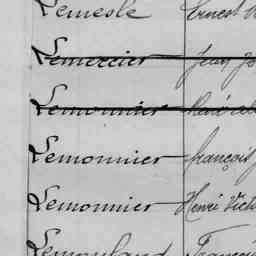 Lemesle Ernest
Lemercier Jean
Lemonnier
Lemonnier François
Lemonnier Henri Vict